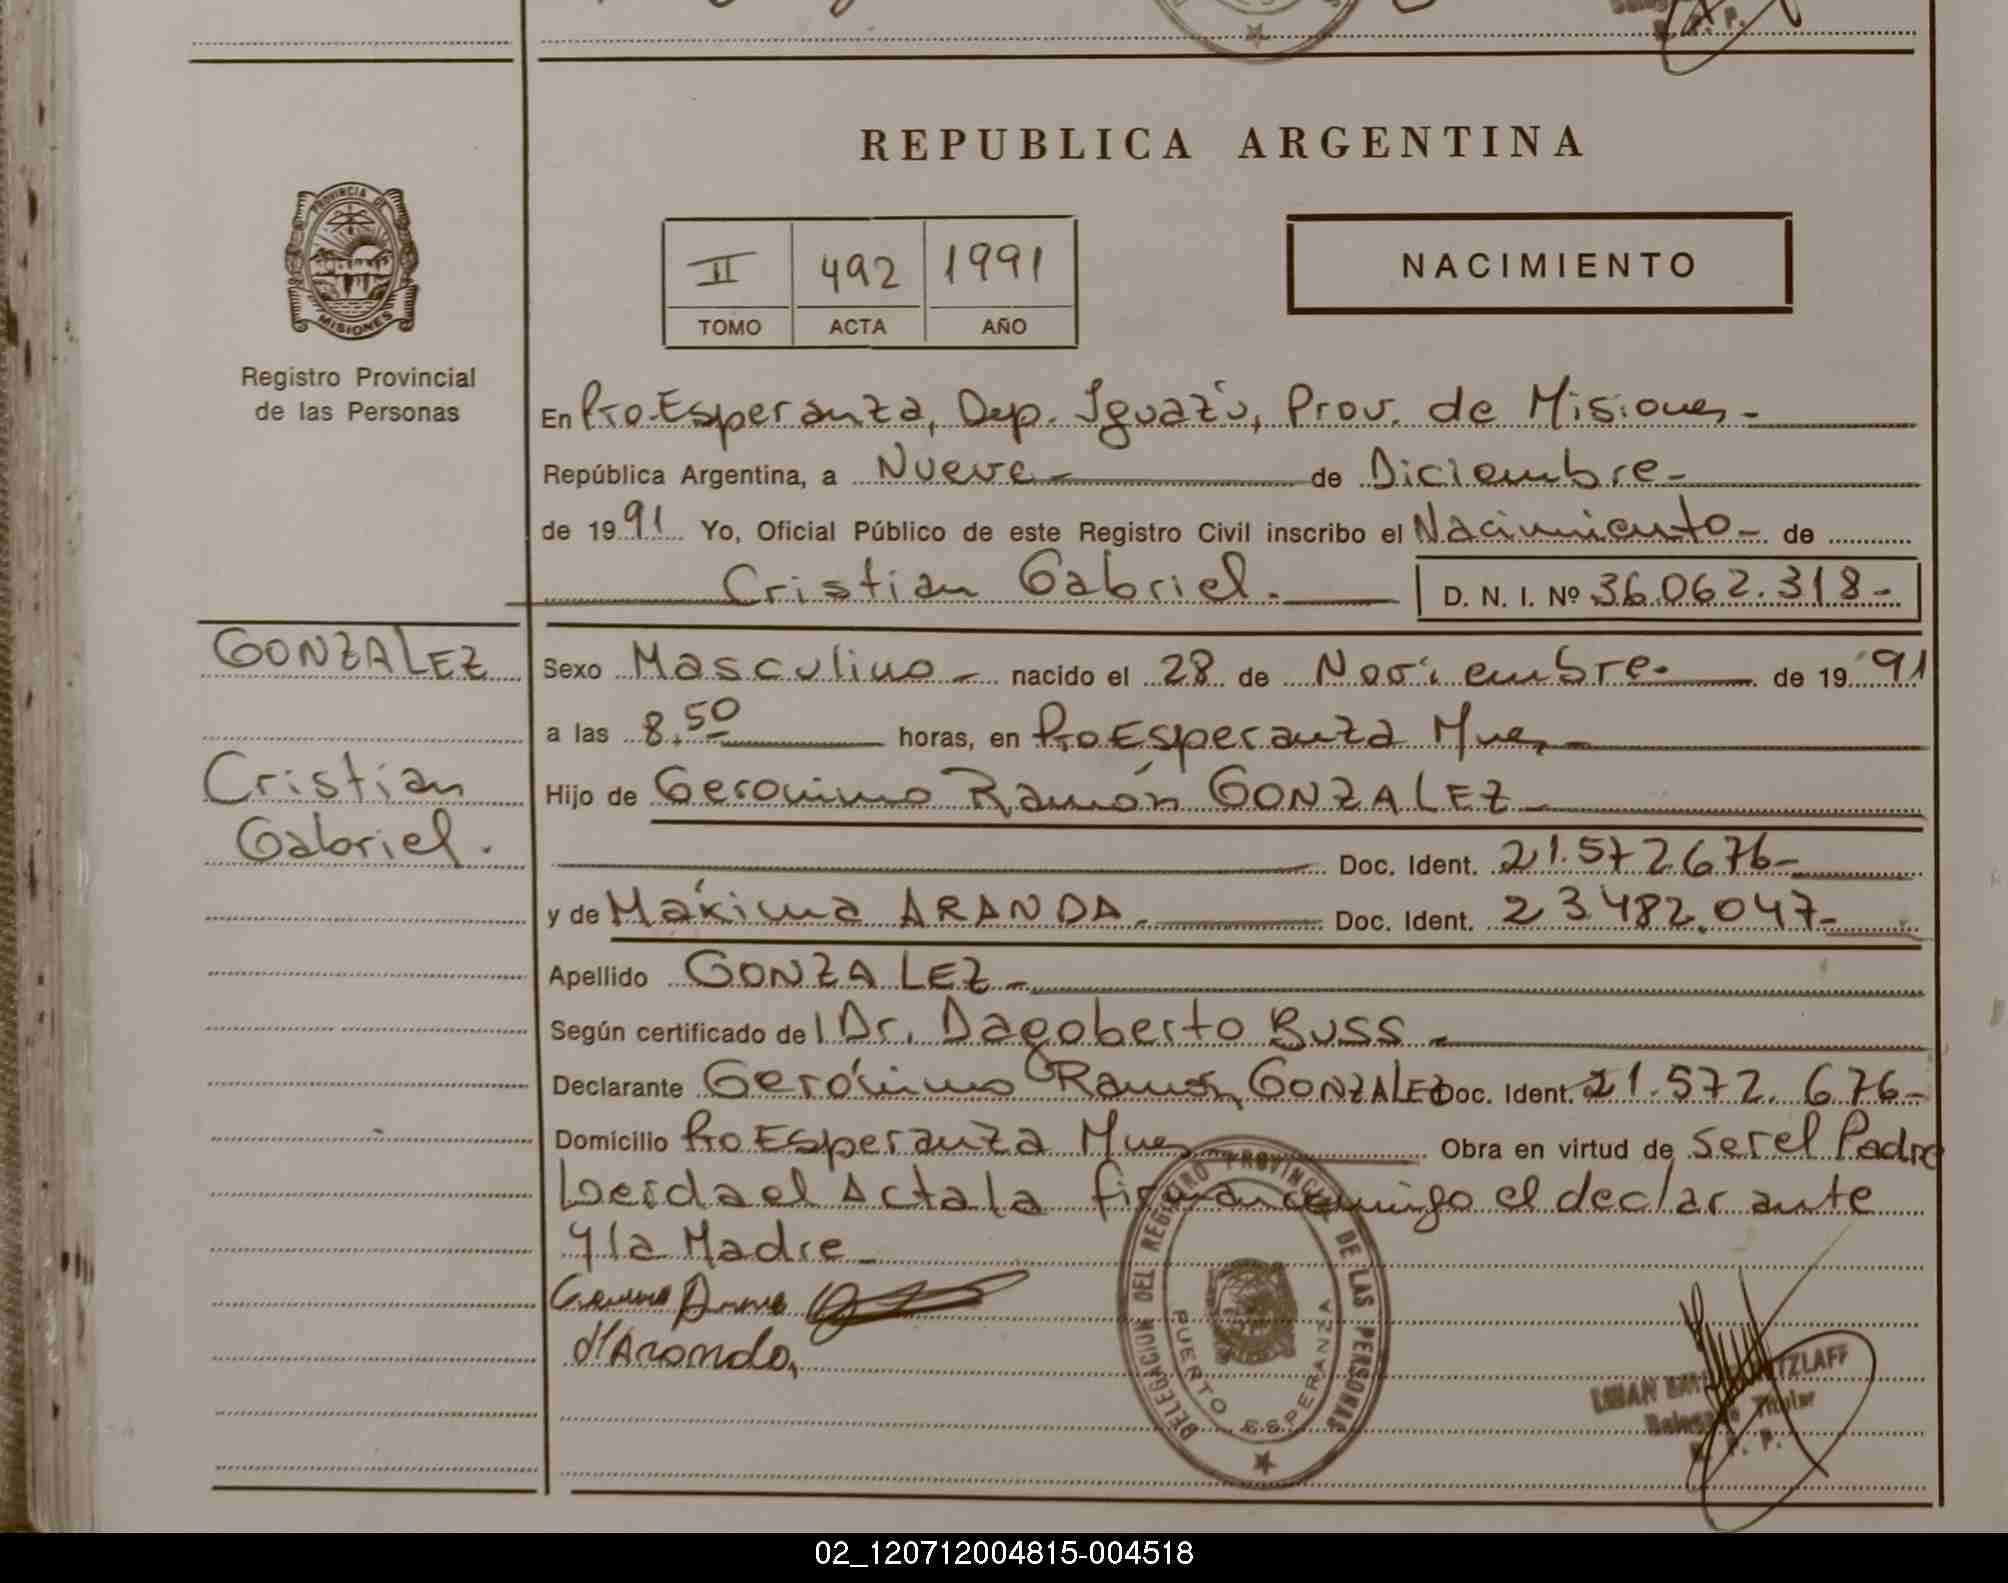 REPUBLICA ARGENTINA
PROVINCIA DE
MISIONES
Registro Provincial
de las Personas
II 492 1991
TOMO ACTA AÑO
NACIMIENTO
En Pto. Esperanza, Dep. Iguazú, Prov. de Misiones -
República Argentina, a Nueve - de Diciembre -
de 1991 Yo, Oficial Público de este Registro Civil inscribo el Nacimiento - de
Cristian Gabriel. - D. N. I. Nº 36.062.318 -
GONZALEZ
Cristian
Gabriel.
Sexo Masculino - nacido el 28 de Noviembre - de 1991
a las 8.50 horas, en Pto Esperanza Mnes -
Hijo de Geronimo Ramón GONZALEZ -
Doc. Ident. 21.572676 -
y de Máxima ARANDA. - Doc. Ident. 23482.047 -
Apellido GONZALEZ -
Según certificado del Dr. Dagoberto Buss -
Declarante Gerónimo Ramón GONZALEZ Doc. Ident. 21.572.676 -
Domicilio Pto Esperanza Mnes Obra en virtud de ser el Padre
Leida el Acta la firman conmigo el declarante
y la Madre -
d'Arondo,
DELEGACION DEL REGISTRO PROVINCIAL DE LAS PERSONAS
PUERTO ESPERANZA
Titular
02_120712004815-004518